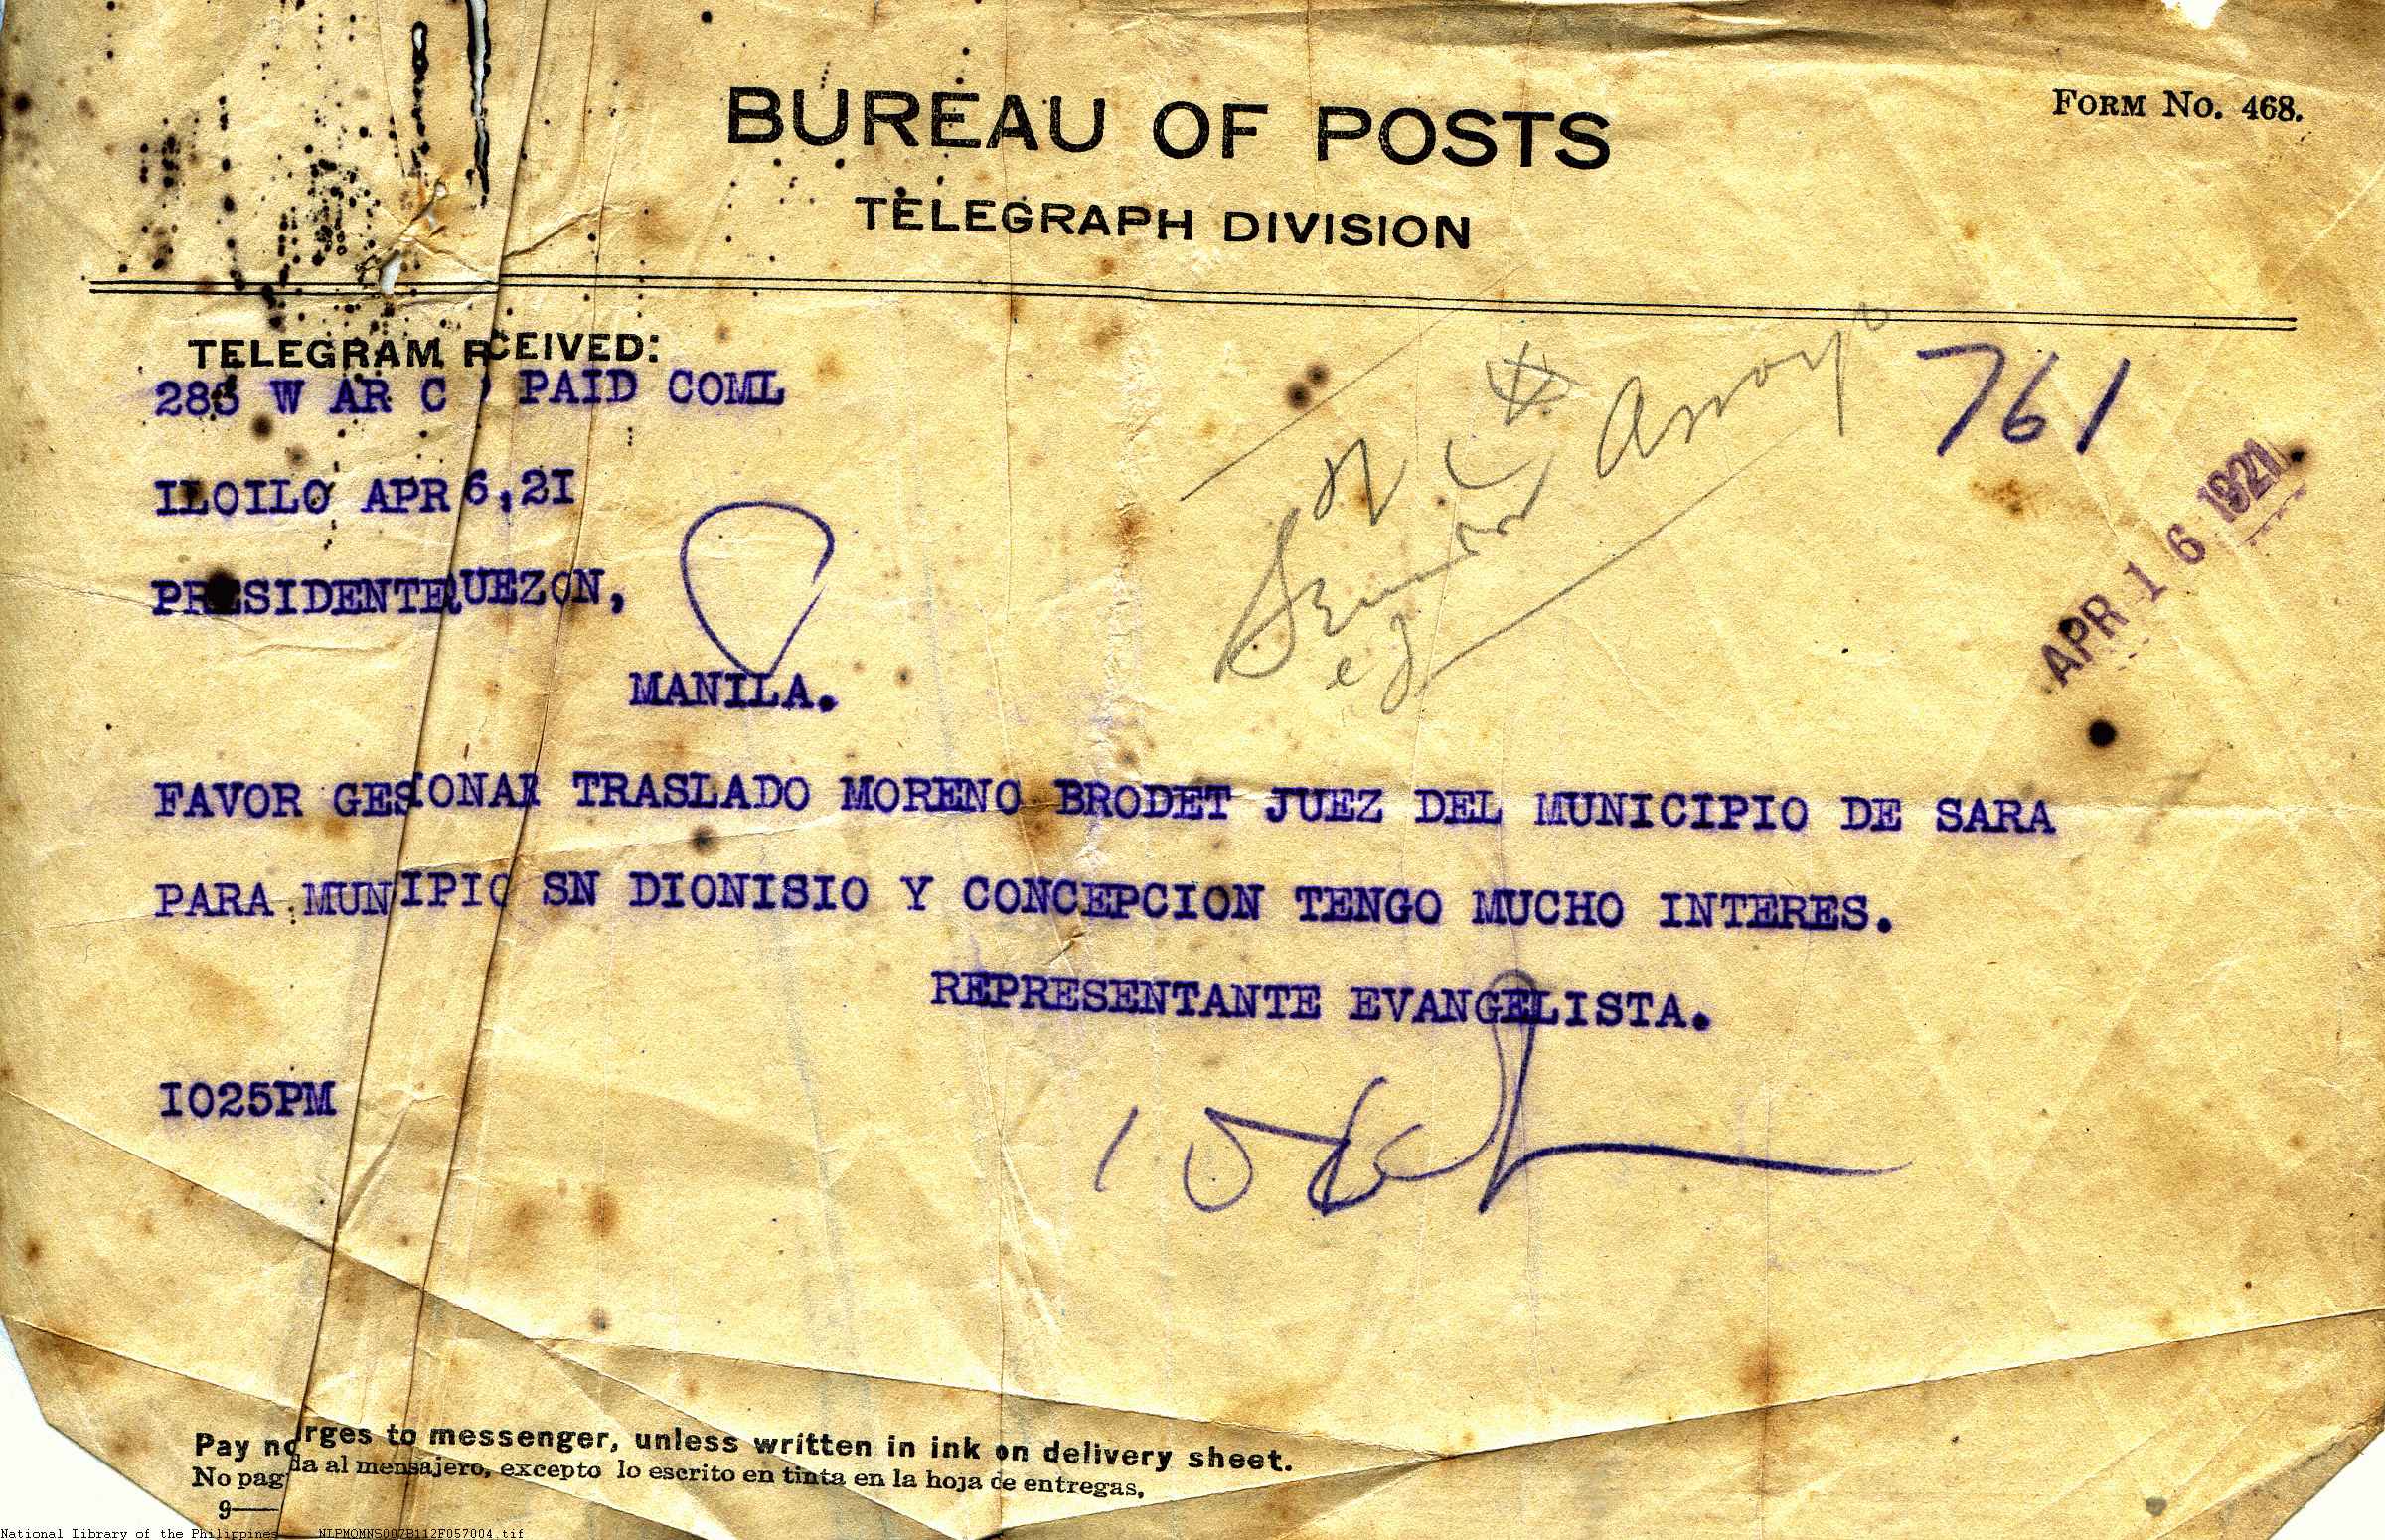 BUREAU OF POSTS
FORM No. 468.
TELEGRAPH DIVISION
TELEGRAM R CEIVED:
283 W AR C PAID COML
761
ILOILO APR 6,2I
APR 16 1921
PRESIDENTE QUEZON,
Arroyo
MANILA.
FAVOR GES IONAR TRASLADO MORENO BRODET JUEZ DEL MUNICIPIO DE SARA
PARA MUN IPIO SN DIONISIO Y CONCEPCION TENGO MUCHO INTERES.
REPRESENTANTE EVANGELISTA.
I025PM
Pay no rges to messenger, unless written in ink on delivery sheet.
No pag da al mensajero, excepto lo escrito en tinta en la hoja de entregas.
9—
National Library of the Philippines NLPMQMNS007B112F057004.tif